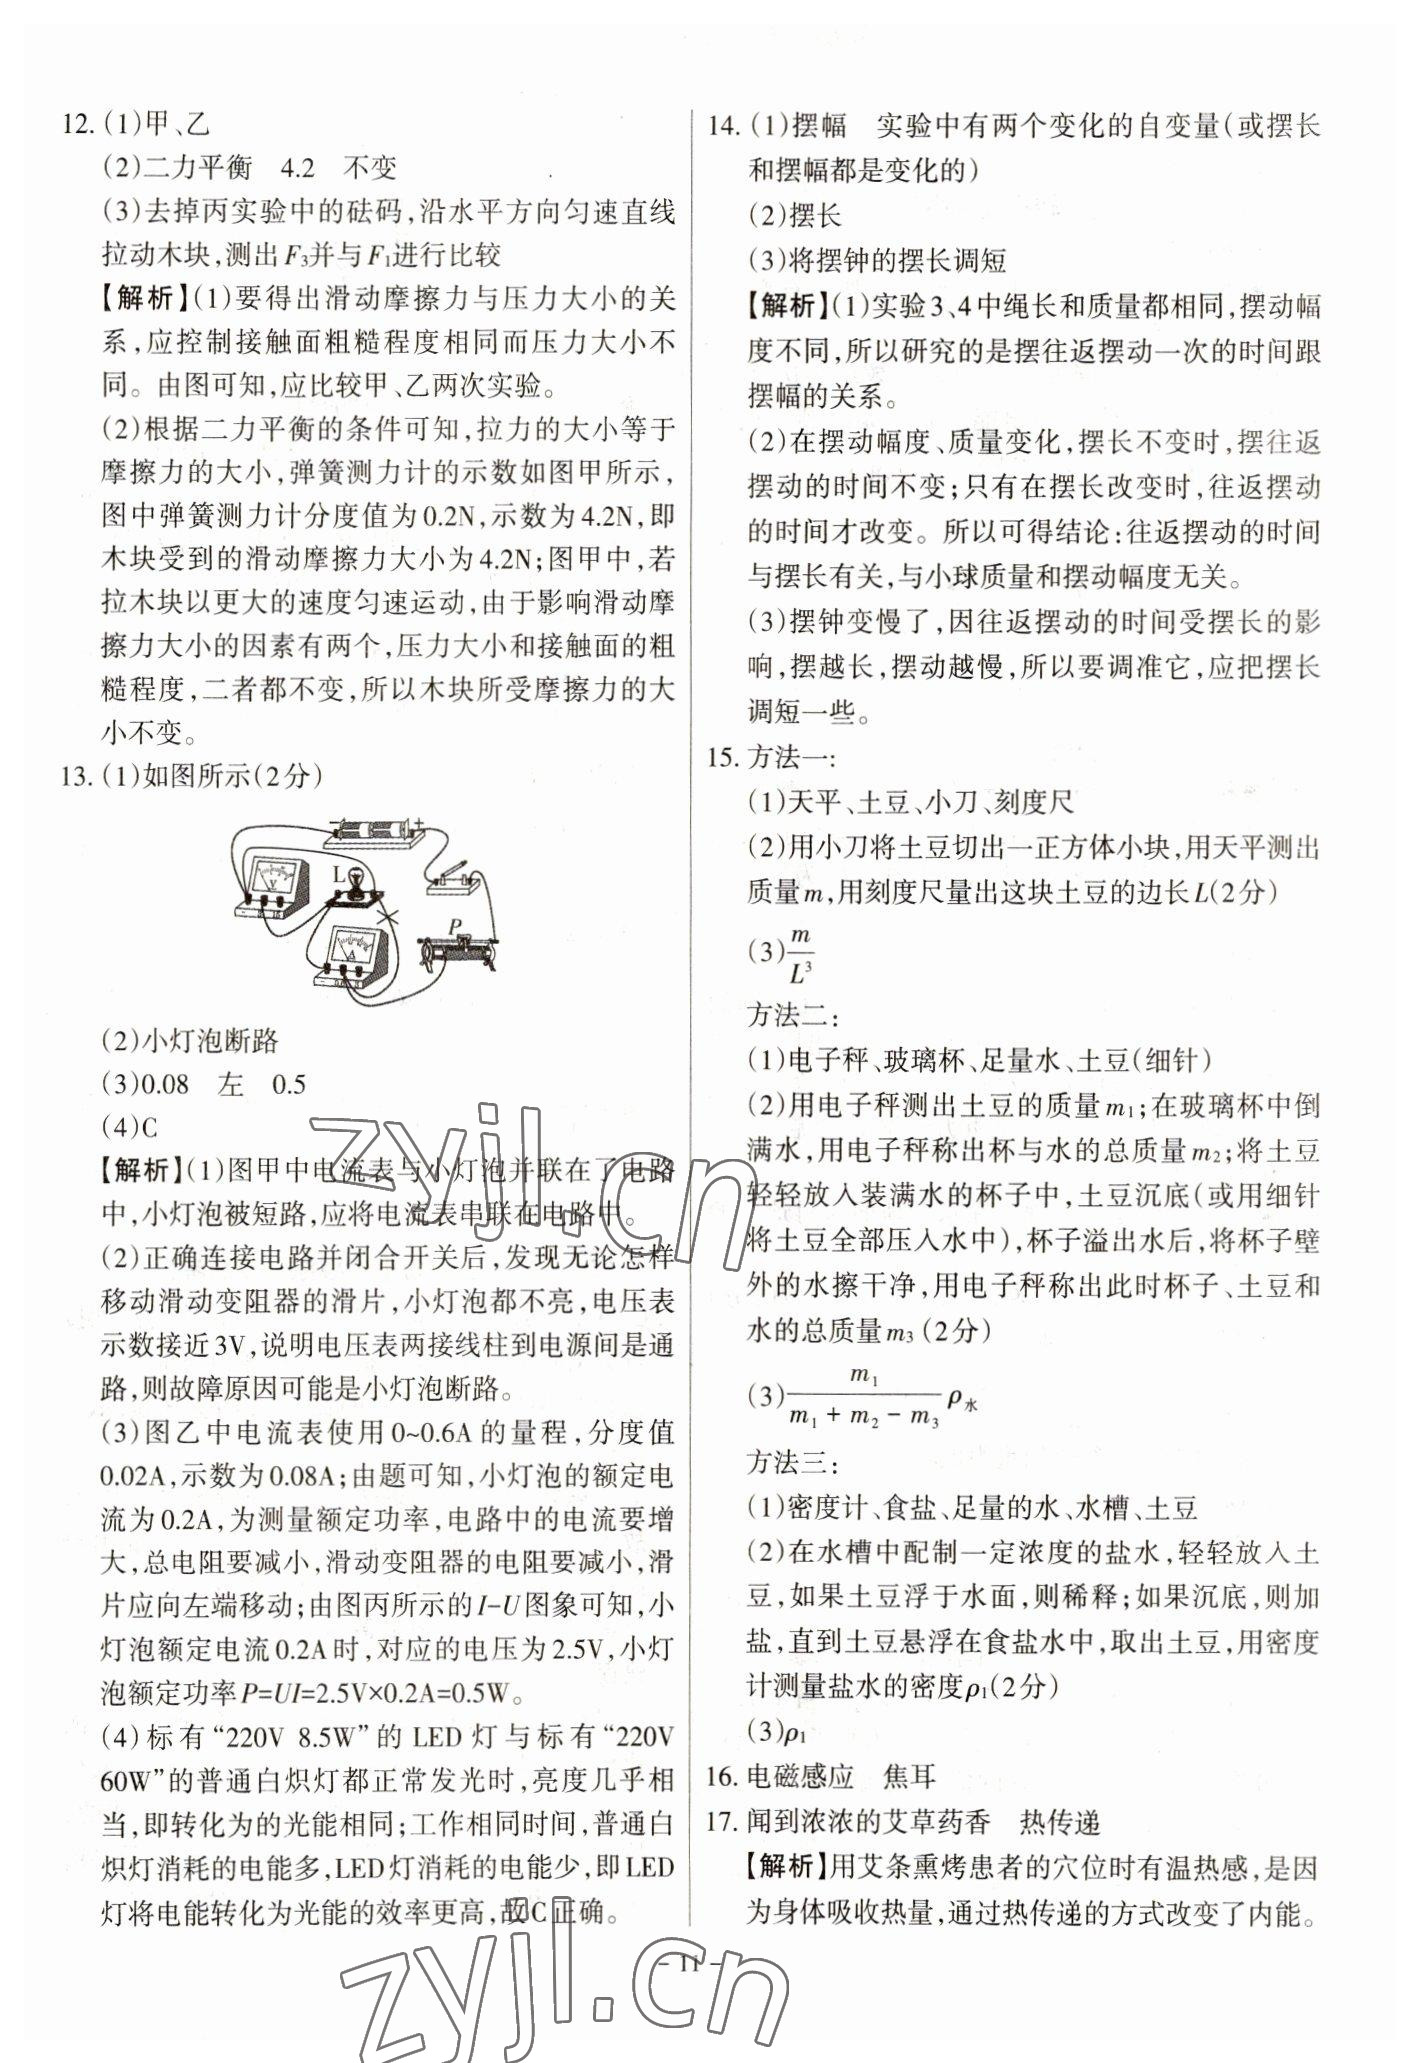 12. (1)甲、乙
(2)二力平衡　4.2　不变
(3)去掉丙实验中的砝码,沿水平方向匀速直线
拉动木块,测出F₃并与F₁进行比较
【解析】(1)要得出滑动摩擦力与压力大小的关
系,应控制接触面粗糙程度相同而压力大小不
同。由图可知,应比较甲、乙两次实验。
(2)根据二力平衡的条件可知,拉力的大小等于
摩擦力的大小,弹簧测力计的示数如图甲所示,
图中弹簧测力计分度值为0.2N,示数为4.2N,即
木块受到的滑动摩擦力大小为4.2N;图甲中,若
拉木块以更大的速度匀速运动,由于影响滑动摩
擦力大小的因素有两个,压力大小和接触面的粗
糙程度,二者都不变,所以木块所受摩擦力的大
小不变。
13. (1)如图所示(2分)
− +
V
L
A
P
(2)小灯泡断路
(3)0.08　左　0.5
(4)C
【解析】(1)图甲中电流表与小灯泡并联在了电路
中,小灯泡被短路,应将电流表串联在电路中。
(2)正确连接电路并闭合开关后,发现无论怎样
移动滑动变阻器的滑片,小灯泡都不亮,电压表
示数接近3V,说明电压表两接线柱到电源间是通
路,则故障原因可能是小灯泡断路。
(3)图乙中电流表使用0~0.6A的量程,分度值
0.02A,示数为0.08A;由题可知,小灯泡的额定电
流为0.2A,为测量额定功率,电路中的电流要增
大,总电阻要减小,滑动变阻器的电阻要减小,滑
片应向左端移动;由图丙所示的I-U图象可知,小
灯泡额定电流0.2A时,对应的电压为2.5V,小灯
泡额定功率P=UI=2.5V×0.2A=0.5W。
(4)标有“220V 8.5W”的LED灯与标有“220V
60W”的普通白炽灯都正常发光时,亮度几乎相
当,即转化为的光能相同;工作相同时间,普通白
炽灯消耗的电能多,LED灯消耗的电能少,即LED
灯将电能转化为光能的效率更高,故C正确。
14. (1)摆幅　实验中有两个变化的自变量(或摆长
和摆幅都是变化的)
(2)摆长
(3)将摆钟的摆长调短
【解析】(1)实验3、4中绳长和质量都相同,摆动幅
度不同,所以研究的是摆往返摆动一次的时间跟
摆幅的关系。
(2)在摆动幅度、质量变化,摆长不变时,摆往返
摆动的时间不变;只有在摆长改变时,往返摆动
的时间才改变。所以可得结论:往返摆动的时间
与摆长有关,与小球质量和摆动幅度无关。
(3)摆钟变慢了,因往返摆动的时间受摆长的影
响,摆越长,摆动越慢,所以要调准它,应把摆长
调短一些。
15. 方法一:
(1)天平、土豆、小刀、刻度尺
(2)用小刀将土豆切出一正方体小块,用天平测出
质量m,用刻度尺量出这块土豆的边长L(2分)
(3) m/L³
方法二:
(1)电子秤、玻璃杯、足量水、土豆(细针)
(2)用电子秤测出土豆的质量m₁;在玻璃杯中倒
满水,用电子秤称出杯与水的总质量m₂;将土豆
轻轻放入装满水的杯子中,土豆沉底(或用细针
将土豆全部压入水中),杯子溢出水后,将杯子壁
外的水擦干净,用电子秤称出此时杯子、土豆和
水的总质量m₃(2分)
(3) m₁/(m₁ + m₂ − m₃) ρ水
方法三:
(1)密度计、食盐、足量的水、水槽、土豆
(2)在水槽中配制一定浓度的盐水,轻轻放入土
豆,如果土豆浮于水面,则稀释;如果沉底,则加
盐,直到土豆悬浮在食盐水中,取出土豆,用密度
计测量盐水的密度ρ₁(2分)
(3)ρ₁
16. 电磁感应　焦耳
17. 闻到浓浓的艾草药香　热传递
【解析】用艾条熏烤患者的穴位时有温热感,是因
为身体吸收热量,通过热传递的方式改变了内能。
– 11 –
zyjl.cn
zyjl.cn